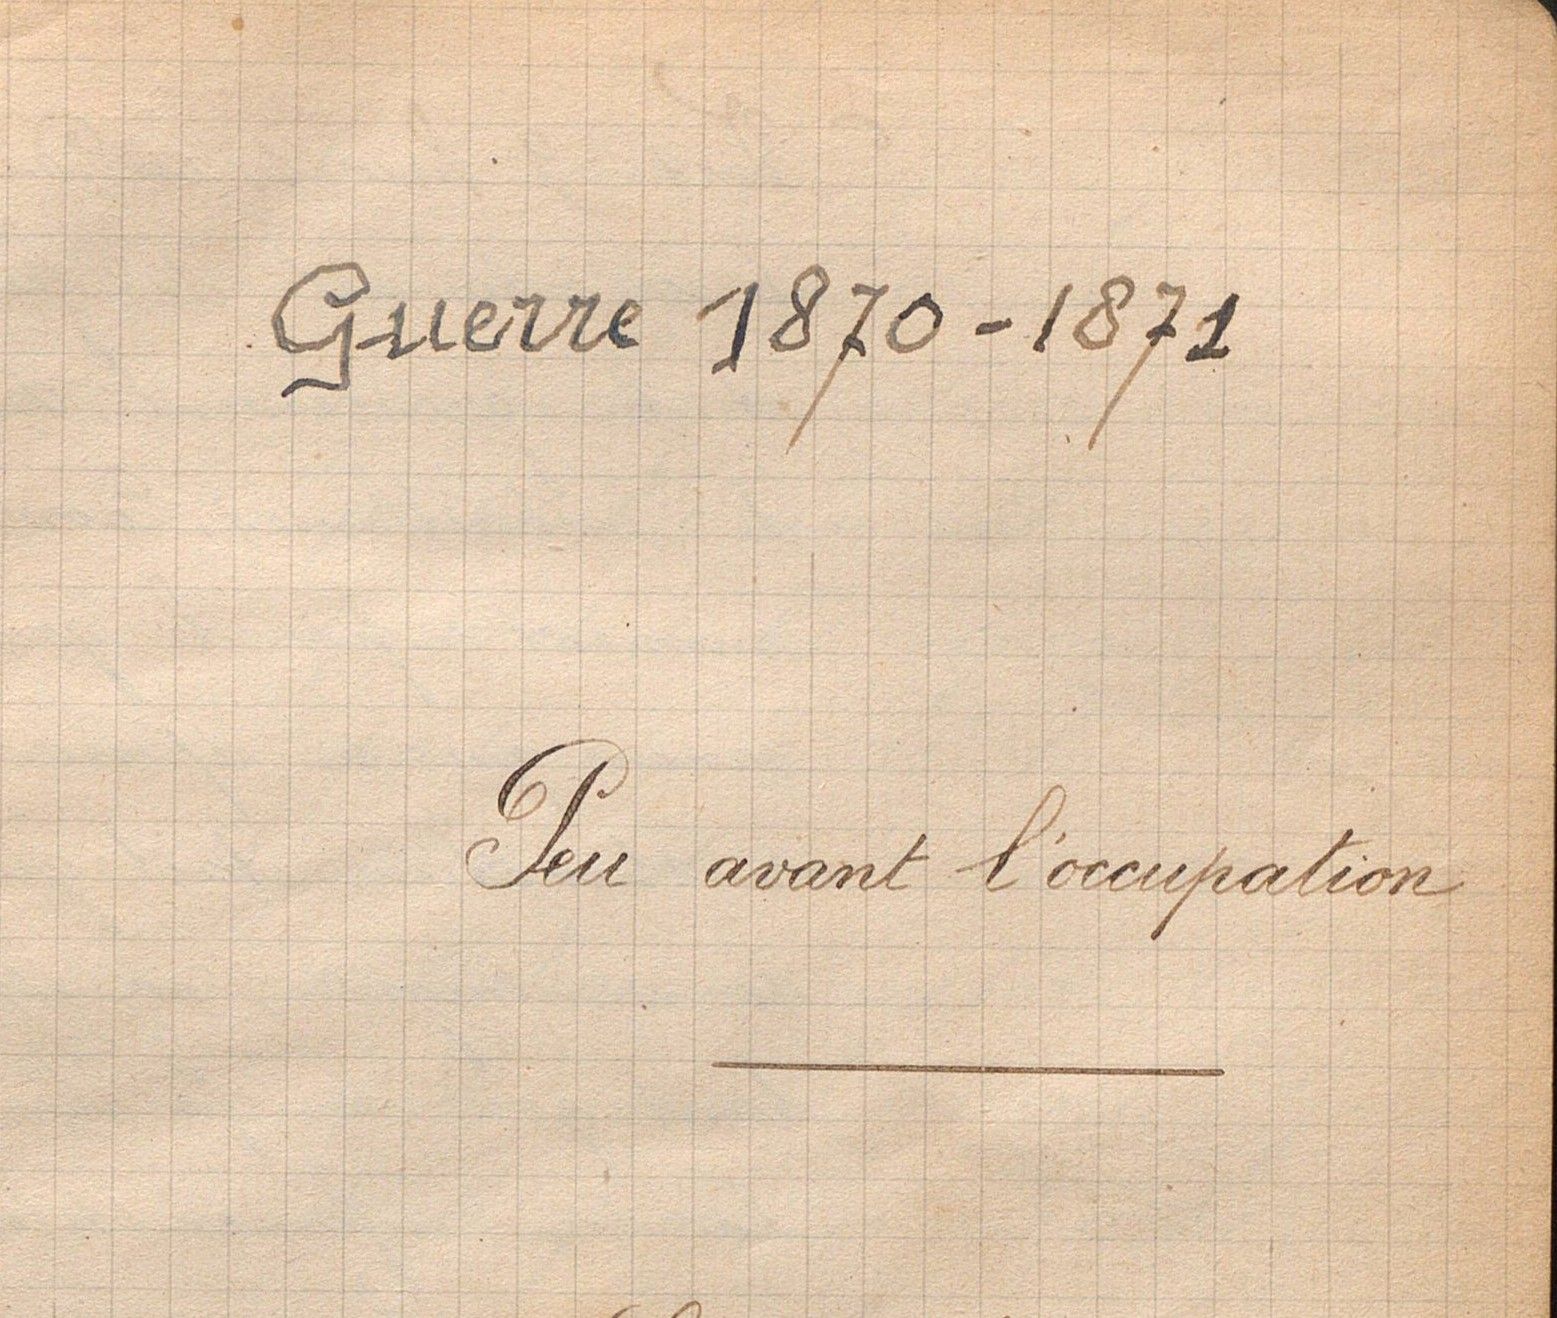 Guerre 1870-1871
Peu avant l'occupation